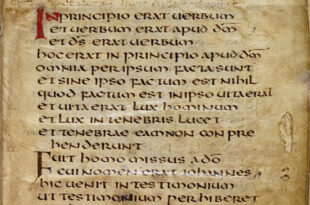 IN PRINCIPIO ERAT UERBUM
ET UERBUM ERAT APUD DM
ET DS ERAT UERBUM
HOC ERAT IN PRINCIPIO APUD DM
OMNIA PER IPSUM FACTA SUNT
ET SINE IPSO FACTUM EST NIHIL
QUOD FACTUM EST IN IPSO UITA ERAT
ET UITA ERAT LUX HOMINUM
ET LUX IN TENEBRIS LUCET
ET TENEBRAE EAM NON CONPRE
HENDERUNT
FUIT HOMO MISSUS A DO
CUI NOMEN ERAT IOHANNES
HIC UENIT IN TESTIMONIUM
UT TESTIMONIUM PERHIBERET